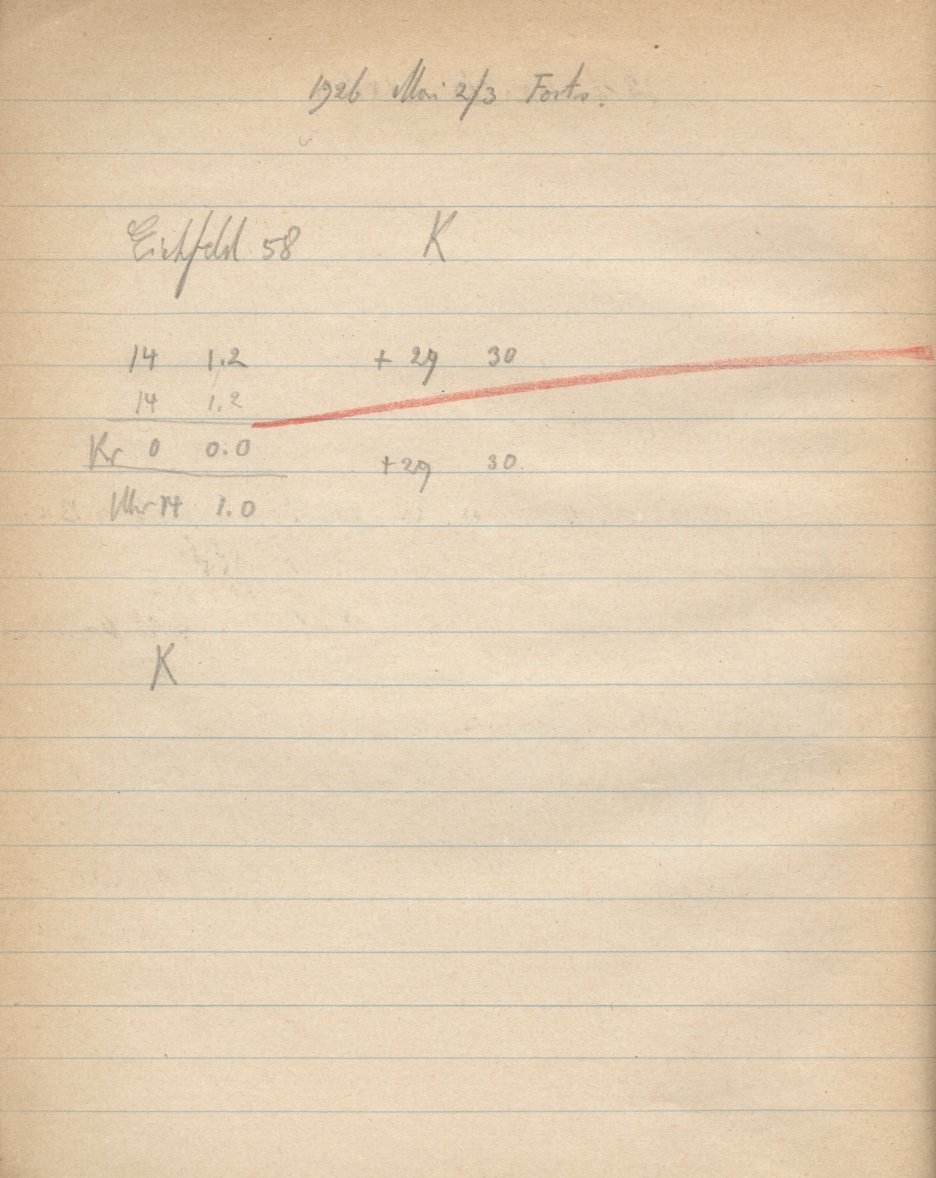 1926 Mai 2/3 Forts.
Eichfeld 58 K
14 1.2 + 29 30
14 1.2
Kr 0 0.0 +29 30
Uhr 14 1.0
K